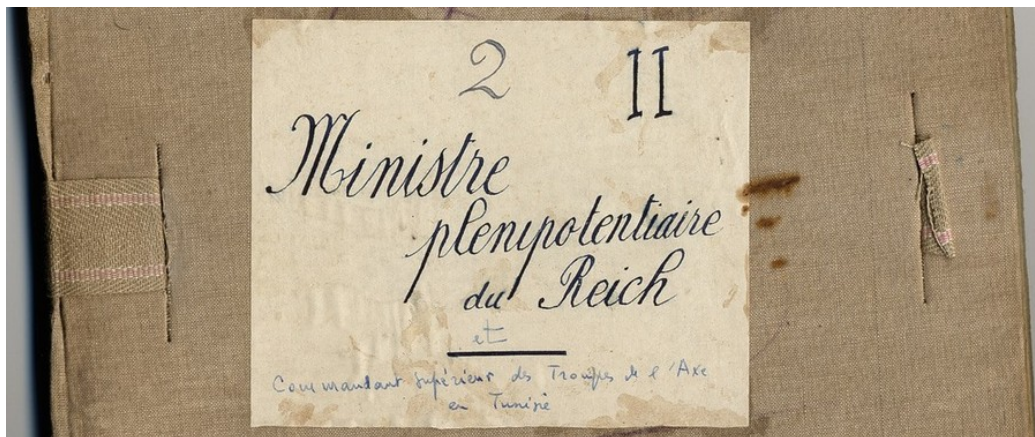 2 II
Ministre
plenipotentiaire
du Reich
et
Commandant supérieur des Troupes de l'Axe
en Tunisie